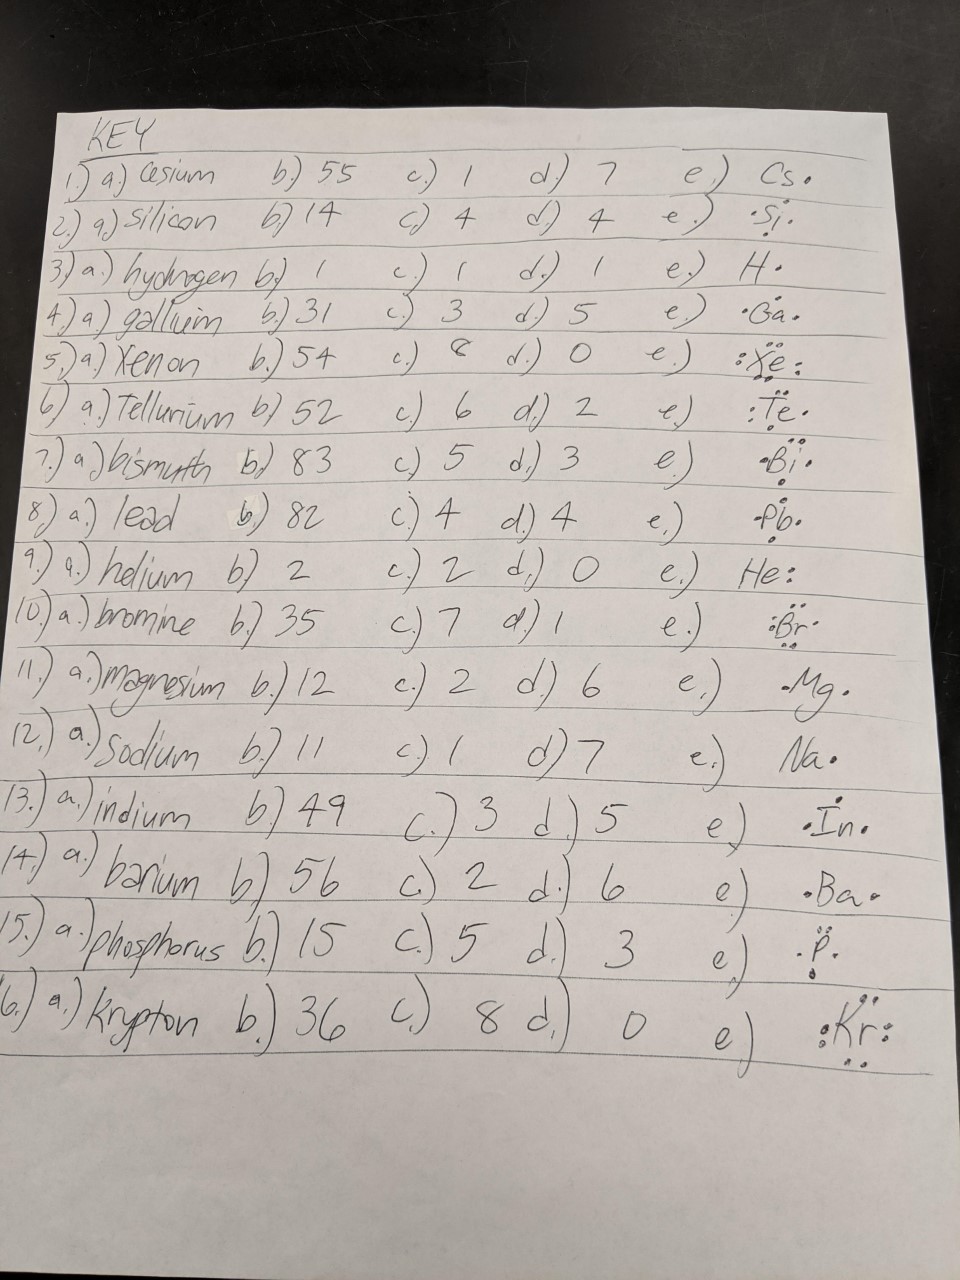 KEY
1.) a.) Cesium b.) 55 c.) 1 d.) 7 e.) Cs
2.) a) Silicon b) 14 c) 4 d) 4 e.) Si
3.) a.) hydrogen b.) 1 c.) 1 d.) 1 e.) H
4.) a) gallium b.) 31 c.) 3 d.) 5 e.) Ga
5.) a.) Xenon b.) 54 c.) 8 d.) 0 e.) Xe
6.) a.) Tellurium b.) 52 c.) 6 d.) 2 e.) Te
7.) a.) bismuth b.) 83 c.) 5 d.) 3 e.) Bi
8.) a.) lead b.) 82 c.) 4 d.) 4 e.) Pb
9.) a.) helium b.) 2 c.) 2 d.) 0 e.) He
10.) a.) bromine b.) 35 c.) 7 d.) 1 e.) Br
11.) a.) magnesium b.) 12 c.) 2 d.) 6 e.) Mg
12.) a.) Sodium b.) 11 c.) 1 d.) 7 e.) Na
13.) a.) indium b.) 49 c.) 3 d.) 5 e.) In
14.) a.) barium b.) 56 c.) 2 d.) 6 e.) Ba
15.) a.) phosphorus b.) 15 c.) 5 d.) 3 e.) P
16.) a.) Krypton b.) 36 c.) 8 d.) 0 e.) Kr